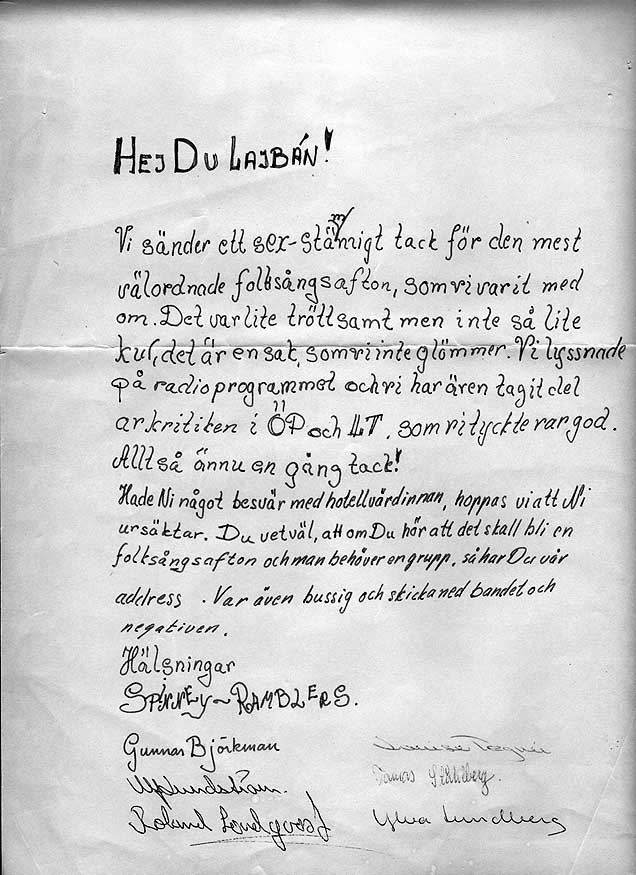 HEJ DU LAJBÁN!
Vi sänder ett sex-stämmigt tack för den mest
välordnade folksångsafton, som vi varit med
om. Det var lite tröttsamt men inte så lite
kul, det är en sak, som vi inte glömmer. Vi lyssnade
på radioprogrammet och vi har även tagit del
av kritiken i ÖP och LT, som vi tyckte var god.
Alltså ännu en gång tack!
Hade Ni något besvär med hotellvärdinnan, hoppas vi att Ni
ursäktar. Du vet väl, att om Du hör att det skall bli en
folksångsafton och man behöver en grupp, så har Du vår
address. Var även bussig och skicka ned bandet och
negativen.
Hälsningar
SPINNEY-RAMBLERS.
Gunnar Björkman
Louise Tegnér
Roland Lendqvist
Ylva Lundberg